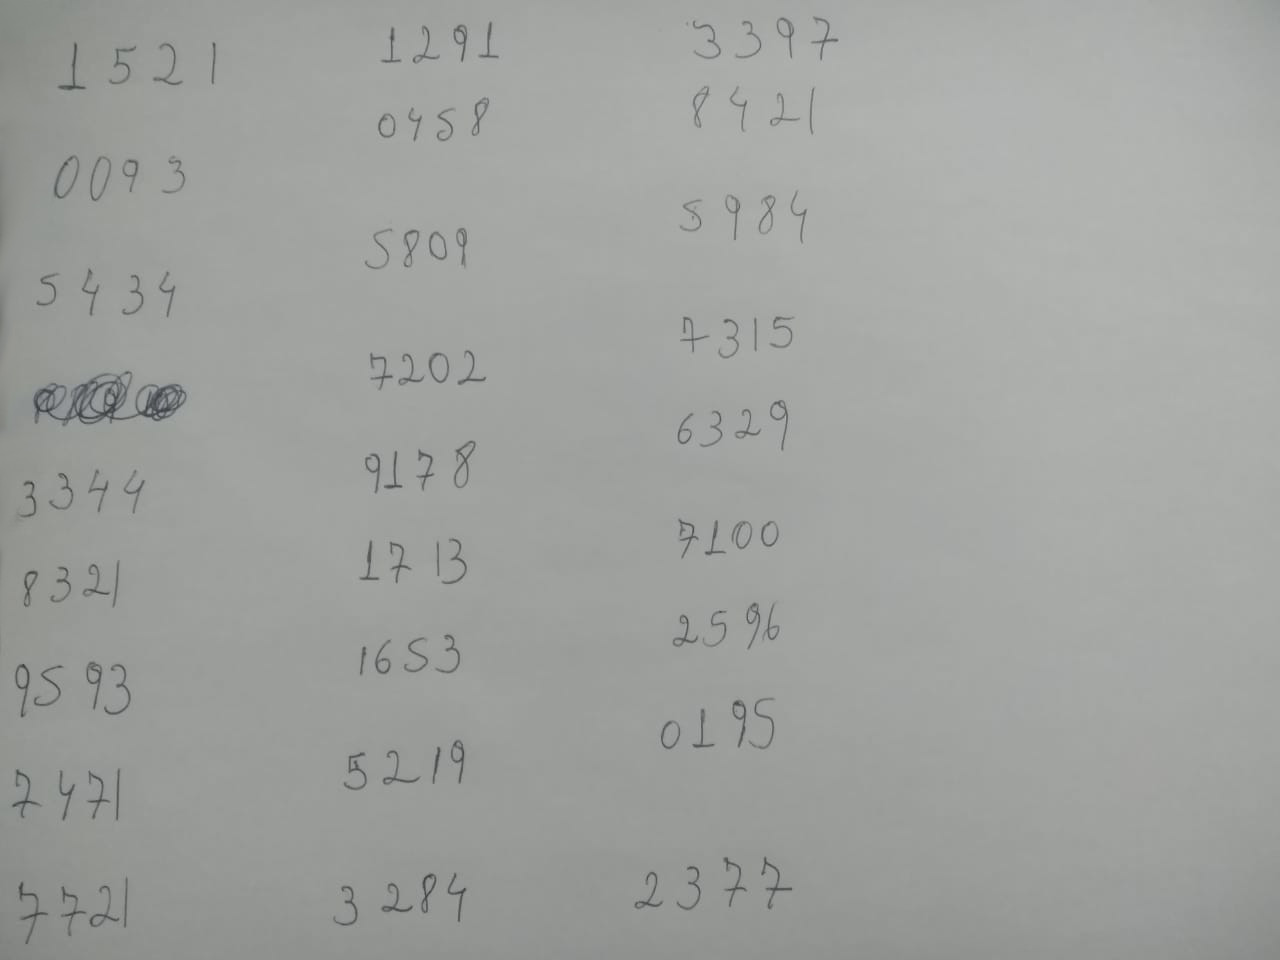 1521
0093
5434
3344
8321
9593
7471
7721
1291
0458
5809
7202
9178
1713
1653
5219
3284
3397
8421
5984
7315
6329
7100
2596
0195
2377